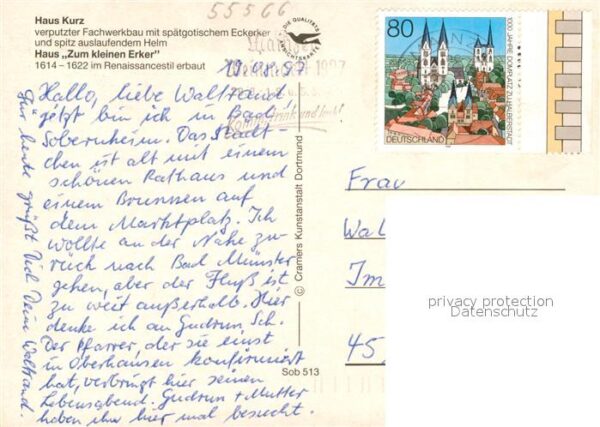 55566
Haus Kurz
verputzter Fachwerkbau mit spätgotischem Eckerker
und spitz auslaufendem Helm
Haus „Zum kleinen Erker"
1614 – 1622 im Renaissancestil erbaut
DIE QUALITÄTS
ANSICHTSKARTE
1997
80
DEUTSCHLAND
1000 JAHRE DOMPLATZ ZU HALBERSTADT
19.08.97
Hallo, liebe Waltraud
jetzt bin ich in Bad
Sobernheim. Das Städt
chen ist alt mit einem
schönen Rathaus und
einem Brunnen auf
dem Marktplatz. Ich
wollte an der Nahe zu-
rück nach Bad Münster
gehen, aber der Fluß ist
zu weit außerhalb. Hier
denke ich an Gudrun, Sch.
Der Pfarrer, der sie einst
in Oberhausen konfirmiert
hat, verbringt hier seinen
Lebensabend. Gudrun + Mutter
haben ihn hier mal besucht.
Für heute grüßt Dich Dein Waltrand.
© Cramers Kunstanstalt Dortmund
Sob 513
Frau
Wal
Im
45
privacy protection
Datenschutz